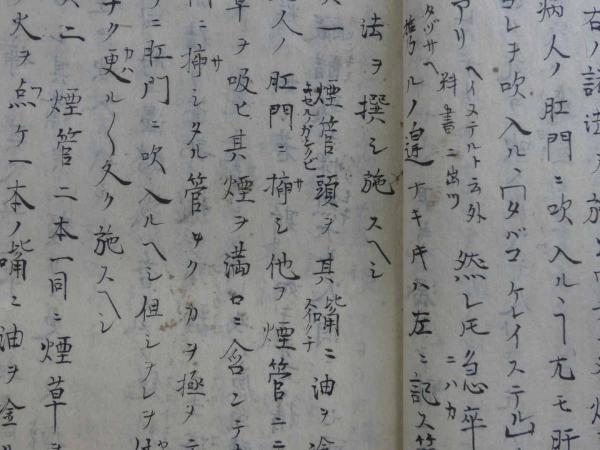 右ノ諸法ヲ施
病人ノ肛門ニ吹入ル丶ヿ尤モ肝
コレヲ吹入ル丶「タバコケレイステル」
アリ ヘイステルト云外科書ニ出ツ 然レ𪜈急卒ニハカ
タヅサヘ 携ルノ遑ナキ𪜈ハ左ニ記ス
法ヲ撰ミ施スヘシ
其一 煙管頭キセルガンクビヲ其嘴スイクチニ油ヲ塗
人ノ肛門ニ挿サシ他ノ煙管ニ
草ヲ吸ヒ其煙ヲ満口ニ含ンテ
ニ挿サシタル管ヨク力ヲ極テ
ニ肛門ニ吹入ルヘシ但シコレヲ
ク更カハル〱久ク施スヘシ
其二 煙管二本一同ニ煙草
火ヲ点ツケ一本ノ嘴ニ油ヲ塗